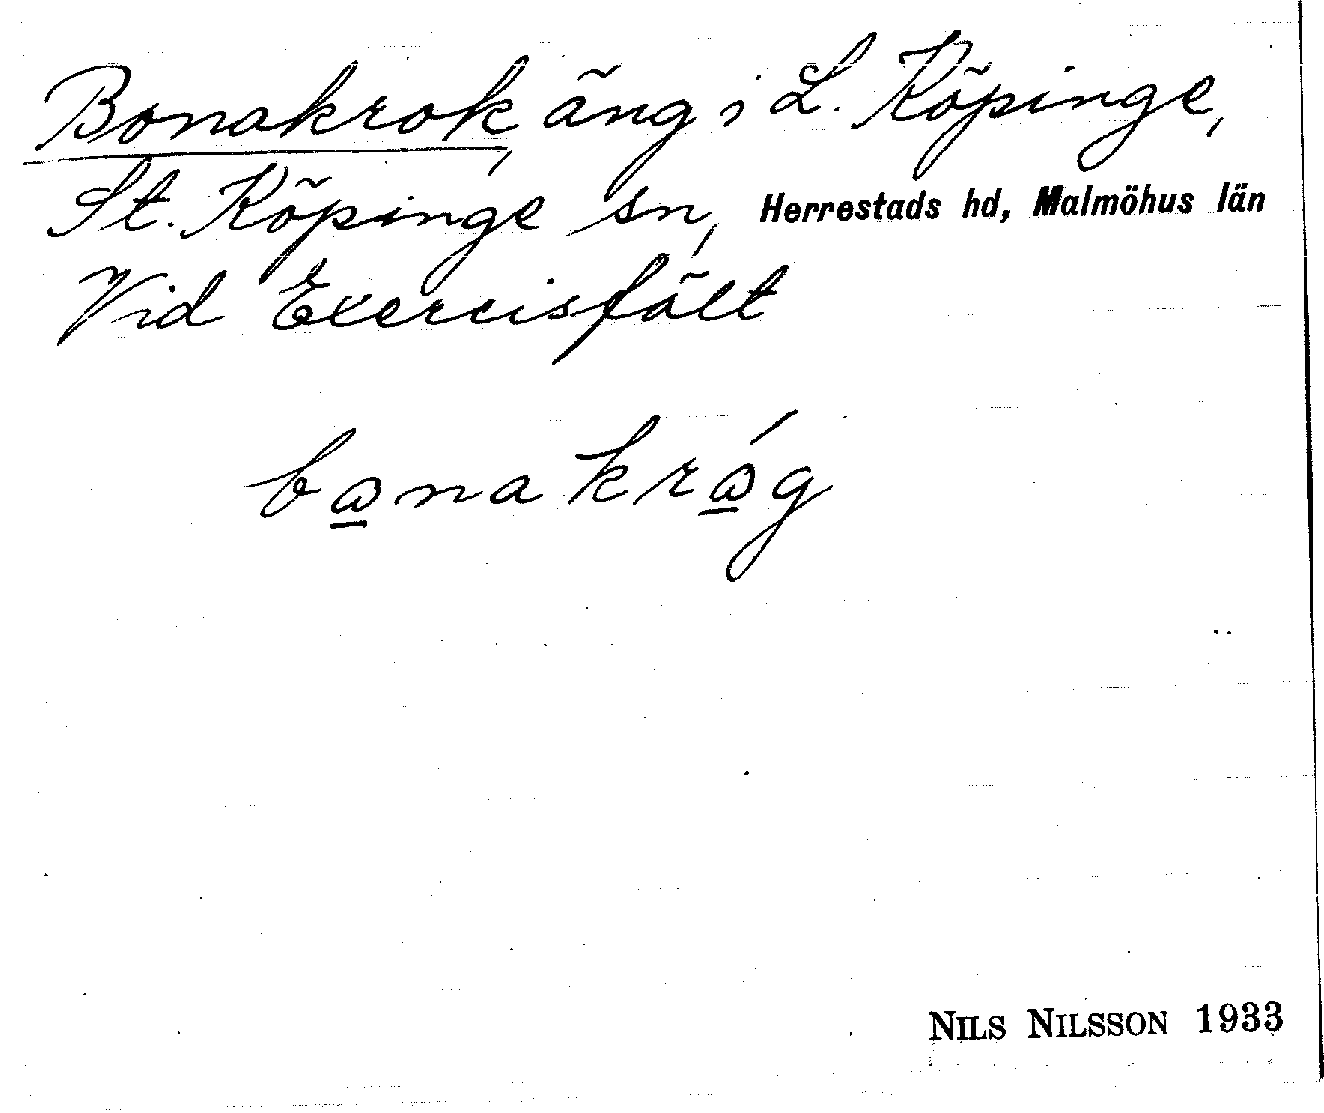 Bonakrok, äng i L. Köpinge,
St. Köpinge sn, Herrestads hd, Malmöhus län
Vid Exercisfält
bꞷ̲nakrꞷ̲́g
NILS NILSSON 1933